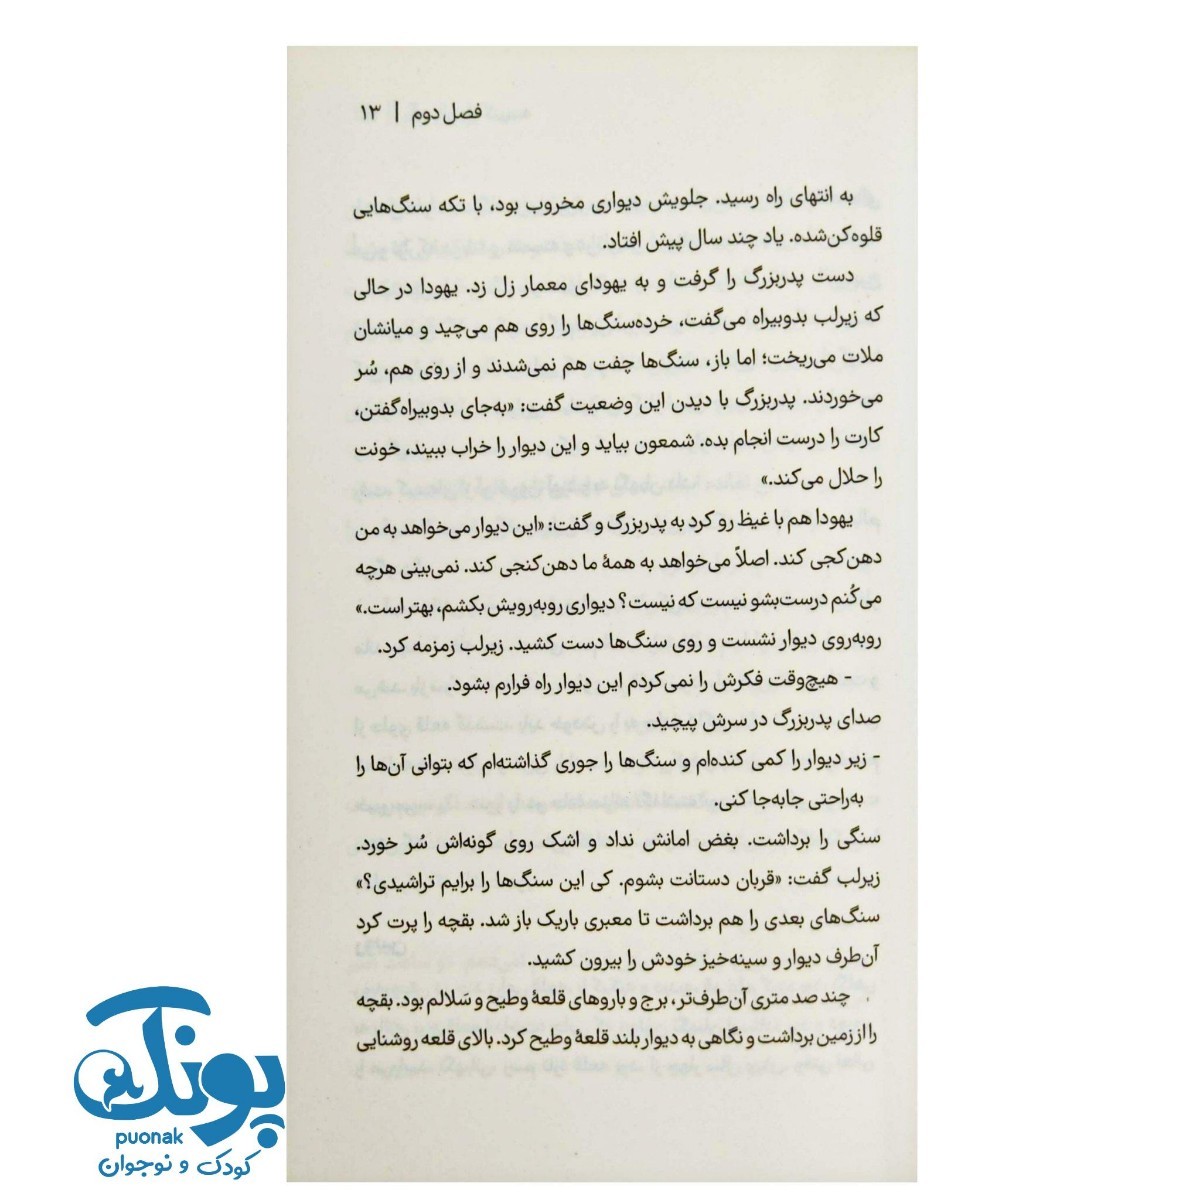 فصل دوم | ۱۳
به انتهای راه رسید. جلویش دیواری مخروب بود، با تکه سنگ‌هایی
قلوه‌کن‌شده. یاد چند سال پیش افتاد.
دست پدربزرگ را گرفت و به یهودای معمار زل زد. یهودا در حالی
که زیرلب بدوبیراه می‌گفت، خرده‌سنگ‌ها را روی هم می‌چید و میانشان
ملات می‌ریخت؛ اما باز، سنگ‌ها چفت هم نمی‌شدند و از روی هم، سُر
می‌خوردند. پدربزرگ با دیدن این وضعیت گفت: «به‌جای بدوبیراه‌گفتن،
کارت را درست انجام بده. شمعون بیاید و این دیوار را خراب ببیند، خونت
را حلال می‌کند.»
یهودا هم با غیظ رو کرد به پدربزرگ و گفت: «این دیوار می‌خواهد به من
دهن‌کجی کند. اصلاً می‌خواهد به همهٔ ما دهن‌کنجی کند. نمی‌بینی هرچه
می‌کُنم درست‌بشو نیست که نیست؟ دیواری روبه‌رویش بکشم، بهتر است.»
روبه‌روی دیوار نشست و روی سنگ‌ها دست کشید. زیرلب زمزمه کرد.
- هیچ‌وقت فکرش را نمی‌کردم این دیوار راه فرارم بشود.
صدای پدربزرگ در سرش پیچید.
- زیر دیوار را کمی کنده‌ام و سنگ‌ها را جوری گذاشته‌ام که بتوانی آن‌ها را
به‌راحتی جابه‌جا کنی.
سنگی را برداشت. بغض امانش نداد و اشک روی گونه‌اش سُر خورد.
زیرلب گفت: «قربان دستانت بشوم. کی این سنگ‌ها را برایم تراشیدی؟»
سنگ‌های بعدی را هم برداشت تا معبری باریک باز شد. بقچه را پرت کرد
آن‌طرف دیوار و سینه‌خیز خودش را بیرون کشید.
چند صد متری آن‌طرف‌تر، برج و باروهای قلعهٔ وطیح و سَلالم بود. بقچه
را از زمین برداشت و نگاهی به دیوار بلند قلعهٔ وطیح کرد. بالای قلعه روشنایی
پونک
puonak
کودک و نوجوان